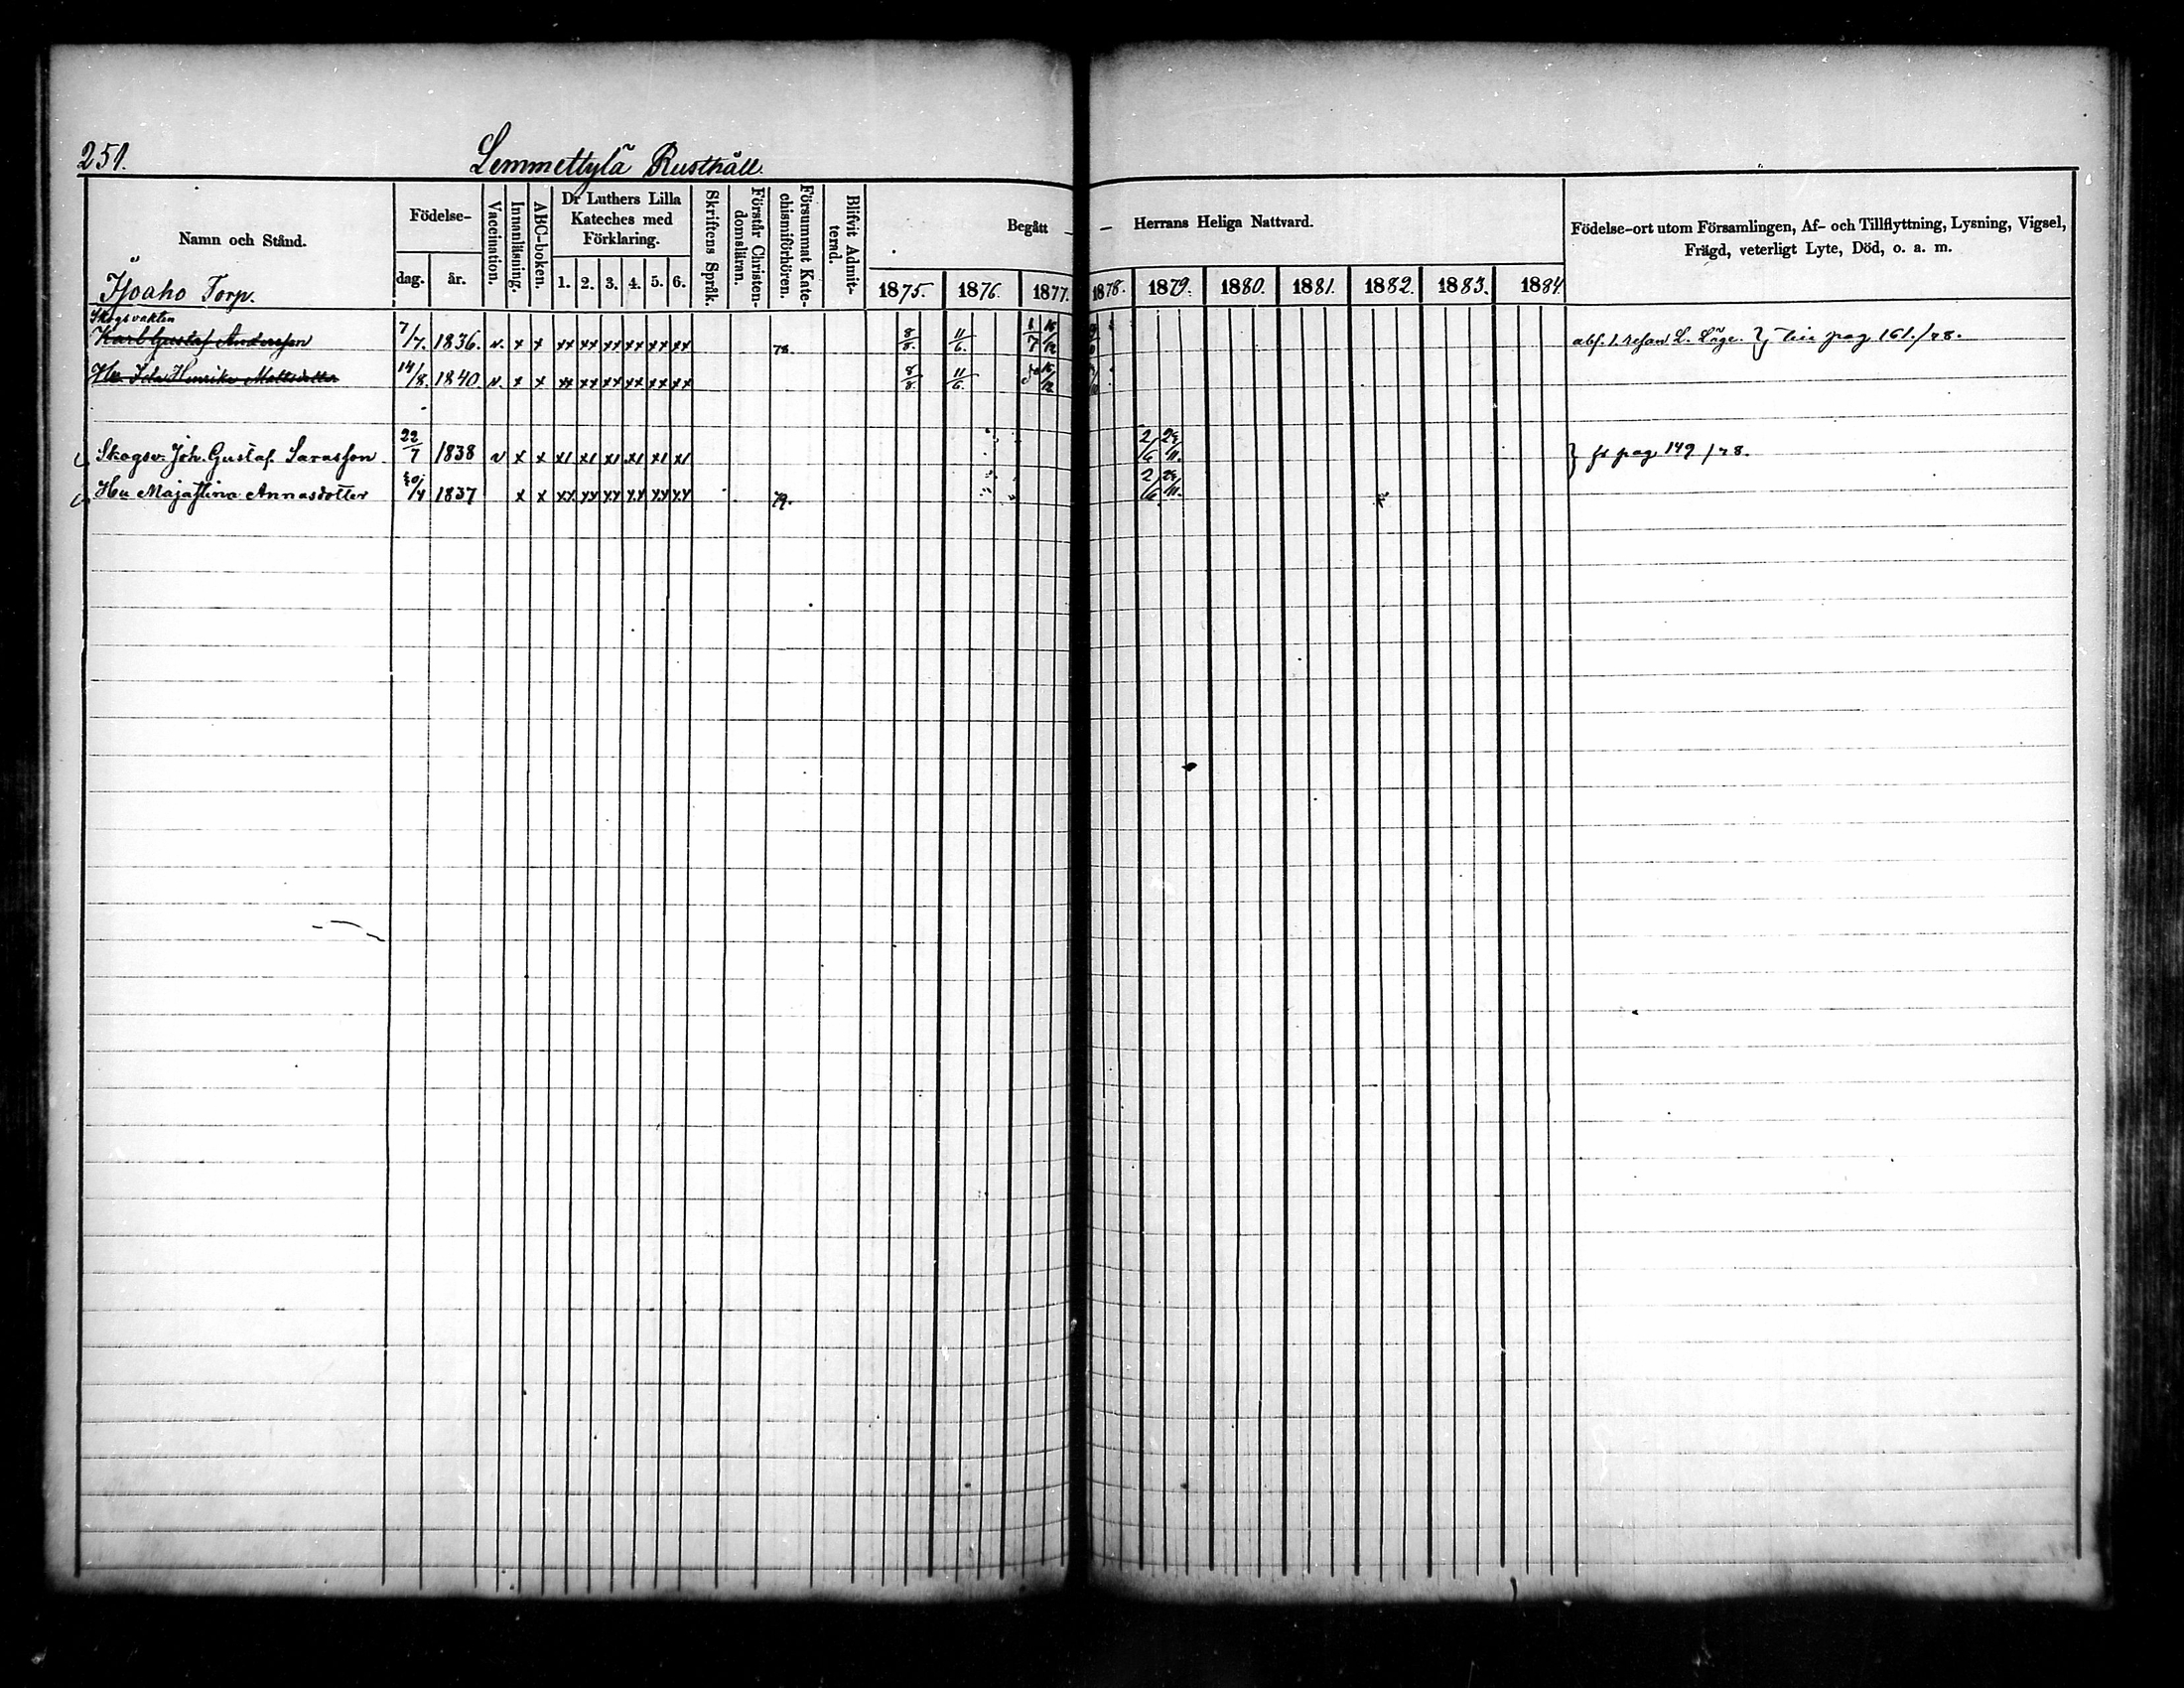 251.
Lemmettylä Rusthåll.
Namn och Stånd.
Födelse-
dag.
år.
Vaccination.
Innanläsning.
ABC-boken.
Dr Luthers Lilla
Kateches med
Förklaring.
1. 2. 3. 4. 5. 6.
Skriftens Språk.
Förstår Christen-
domsläran.
Försummat Kate-
chismiförhören.
Blifvit Admit-
terad.
Begått — — Herrans Heliga Nattvard.
1875. 1876. 1877. 1878. 1879. 1880. 1881. 1882. 1883. 1884
Födelse-ort utom Församlingen, Af- och Tillflyttning, Lysning, Vigsel,
Frägd, veterligt Lyte, Död, o. a. m.
Torp.
Skogsvakten
Karl Gustaf Andersson 7/7. 1836. v. x x xx xx xx xx xx xx 78. 8/8. 11/6. 1/7 16/12 pag 161./78.
Hu Henrika Mattsdotter 14/8. 1840 v. x x xx xx xx xx xx xx 8/8. 11/6. do 16/12
Skogsv. Joh. Gustaf Sarasson 22/7 1838 v x x xi xi xi xi xi xi 2/6 29/11. } fr pag 149/78.
Hu Maja Stina Annasdotter 1837 x x xx xx xx xx xx xx 79. 2/6 29/11.